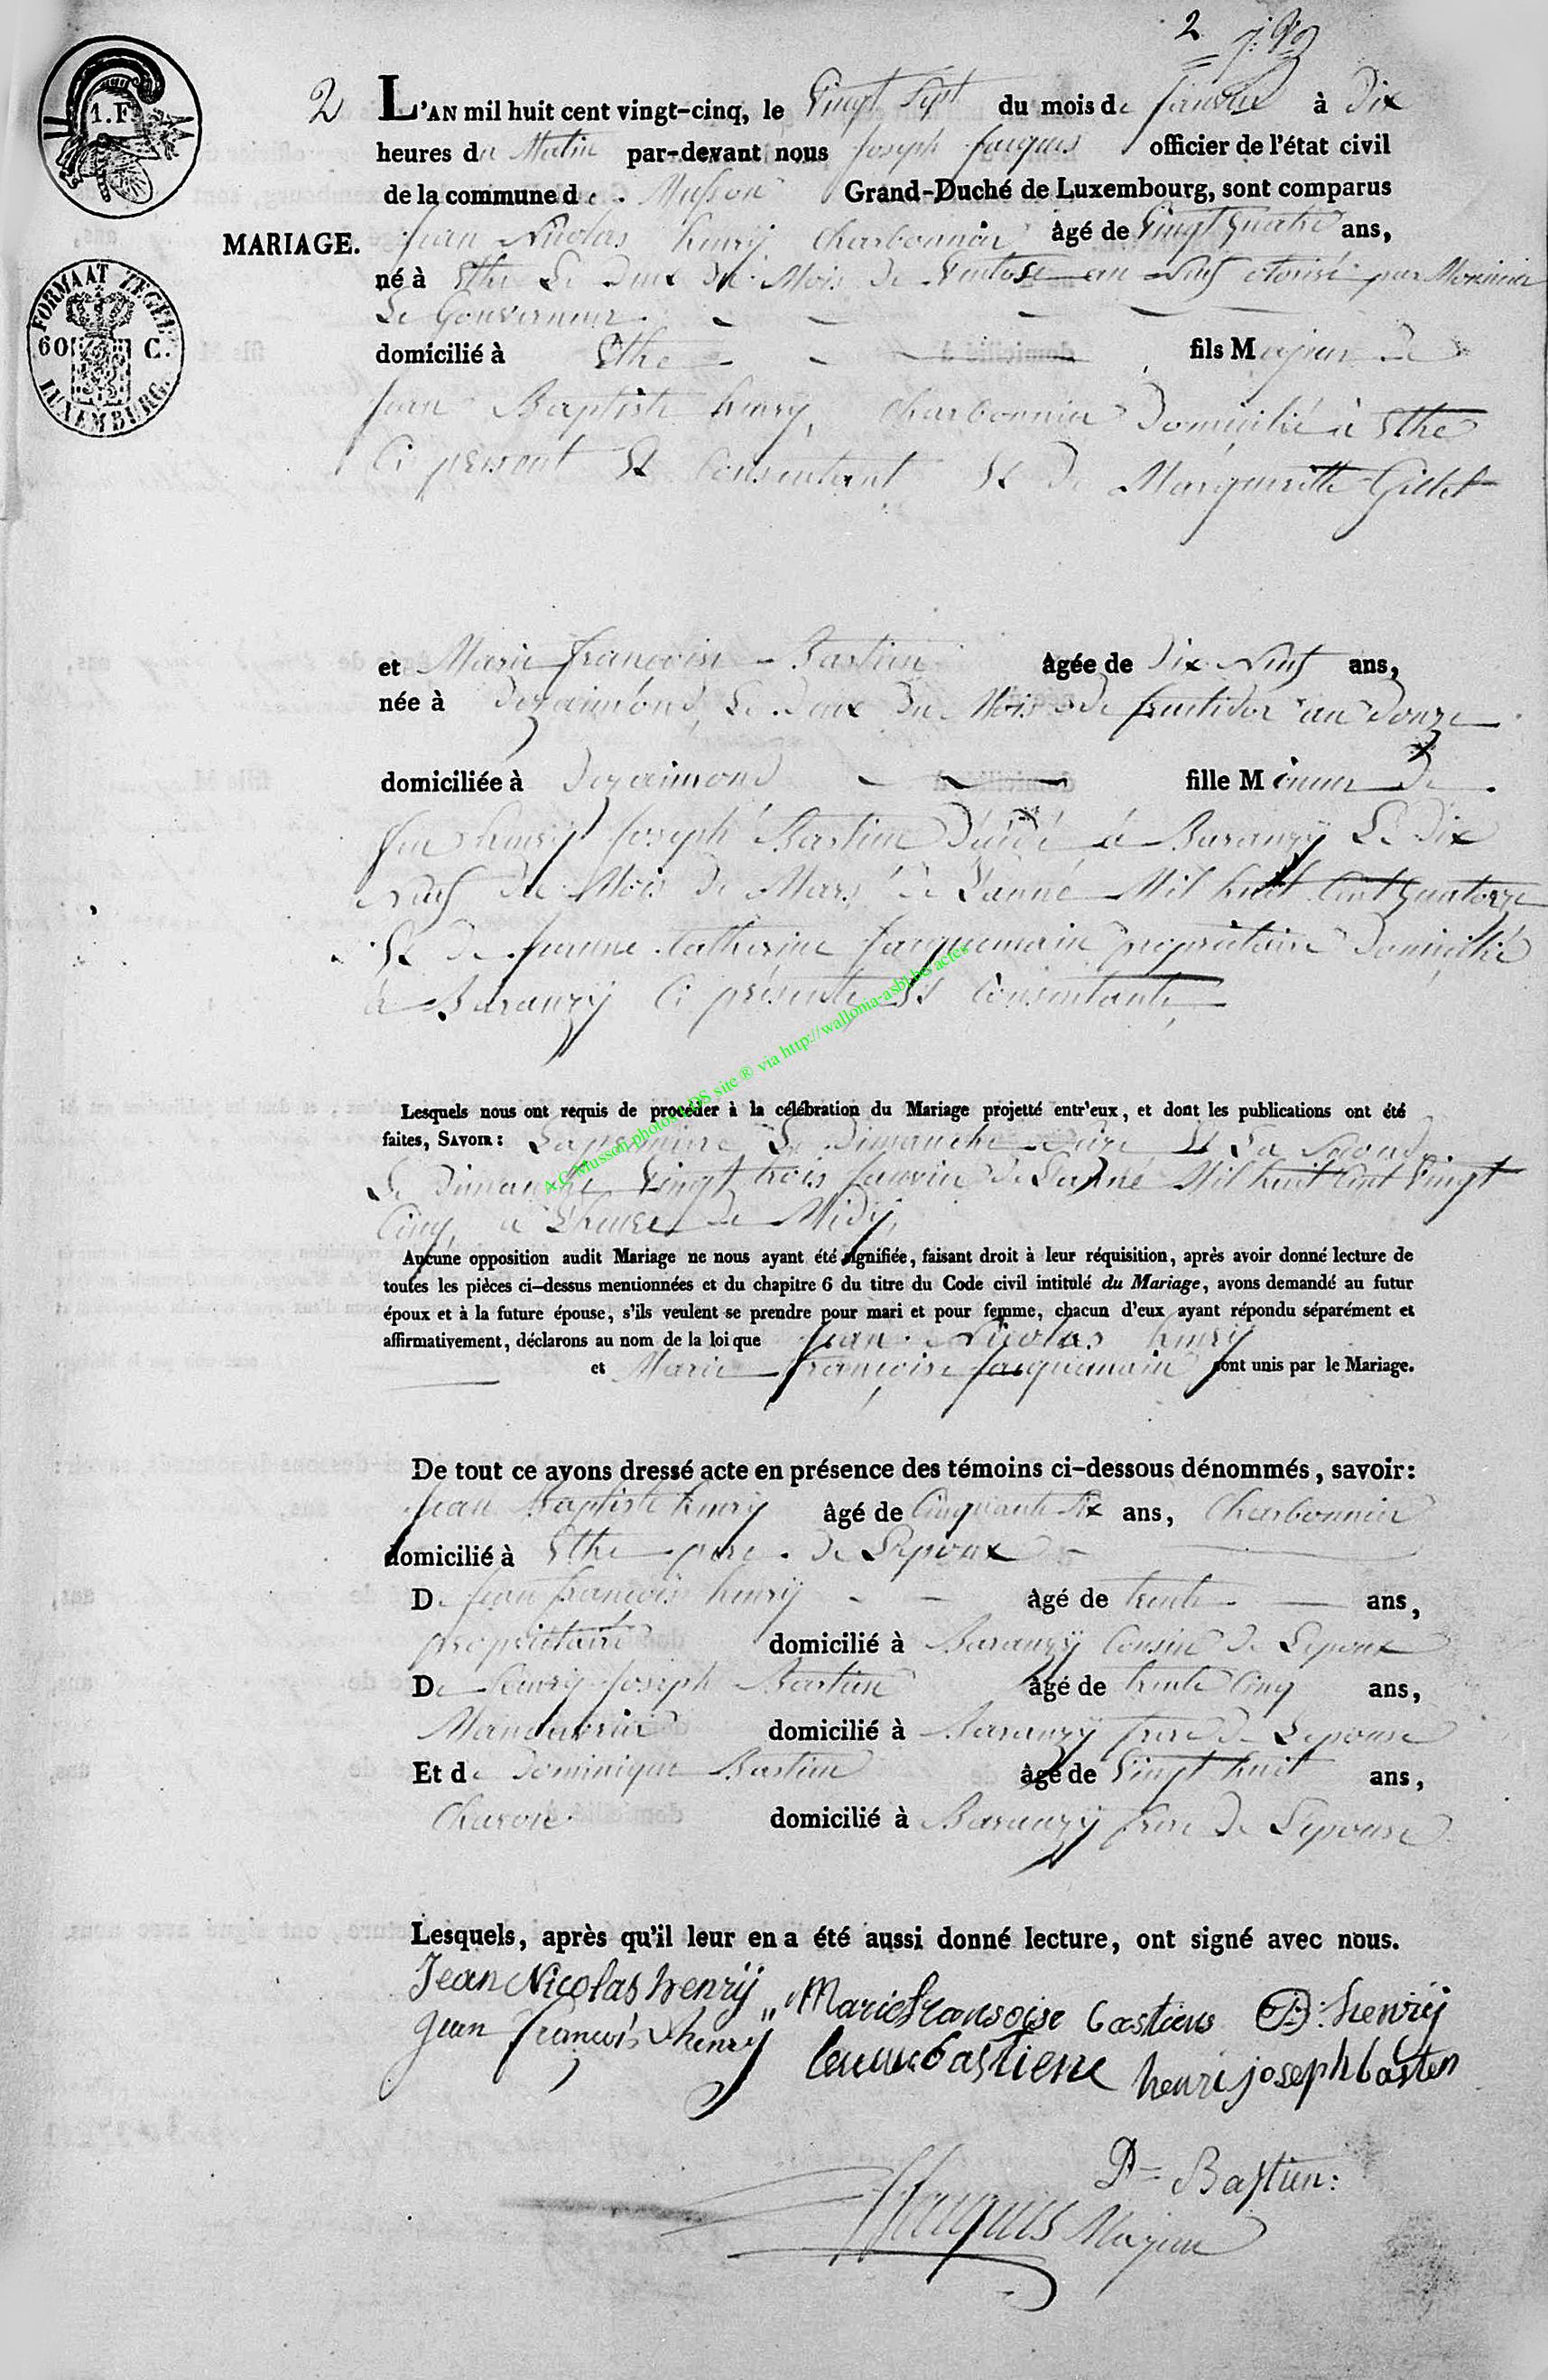 2
1. F
2 L'AN mil huit cent vingt-cinq, le Vingt Sept du mois de Janvier à Dix
heures du Matin par-devant nous Joseph Jacques officier de l'état civil
de la commune de Musson Grand-Duché de Luxembourg, sont comparus
MARIAGE. Jean Nicolas henrÿ charbonnier âgé de Vingt quatre ans,
FORMAAT ZEGEL
60 C.
LUXEMBURG.
né à Ethe Le Deux Du Mois De Ventose an Neuf par Monsieur
Le Gouverneur
domicilié à Ethe fils Majeur De
Jean Baptiste henrÿ, charbonnier Domicilié à Ethe
Ci present Et Consentant Et De Margueritte Gillet
et Marie françoise Bastien âgée de Dix Neuf ans,
née à Le Deux Du Mois De fructidor an Douze
domiciliée à fille Mineur De
feu henrÿ Joseph Bastien Décédé à Baranzÿ Le Dix
Neuf Du Mois De Mars De L'année Mil huit Cent quatorze
Et De Jeanne Catherine Jacquemain propriétaire Domicilié
à Baranzÿ Ci présente Et Consentante
A.G Musson-photos site ® via http://wallonia-asbl.be actes
Lesquels nous ont requis de procéder à la célébration du Mariage projetté entr'eux, et dont les publications ont été
faites, SAVOIR : La premiere Le Dimanche Et La Seconde
Le Dimanche Vingt trois Janvier De L'année Mil huit Cent Vingt
Cinq, à L'heure De Midÿ,
Aucune opposition audit Mariage ne nous ayant été signifiée, faisant droit à leur réquisition, après avoir donné lecture de
toutes les pièces ci-dessus mentionnées et du chapitre 6 du titre du Code civil intitulé du Mariage, avons demandé au futur
époux et à la future épouse, s'ils veulent se prendre pour mari et pour femme, chacun d'eux ayant répondu séparément et
affirmativement, déclarons au nom de la loi que Jean Nicolas henrÿ
et Marie françoise Jacquemain sont unis par le Mariage.
De tout ce avons dressé acte en présence des témoins ci-dessous dénommés, savoir:
Jean Baptiste henrÿ âgé de Cinquante Six ans, Charbonnier
domicilié à Ethe pere De L'epoux
De Jean françois henrÿ âgé de trente ans,
propriétaire domicilié à Baranzÿ Cousin De L'epoux
De henrÿ Joseph Bastien âgé de trente Cinq ans,
Manoeuvrier domicilié à Baranzÿ frere De L'epouse
Et de Dominique Bastien âgé de Vingt huit ans,
Charon domicilié à Baranzÿ frere De L'epouse
Lesquels, après qu'il leur en a été aussi donné lecture, ont signé avec nous.
Jean Nicolas henrÿ Marie fransoise bastiens henrÿ
Jean françois henrÿ bastiene henri joseph basten
D Bastien:
Jacques Mayeur